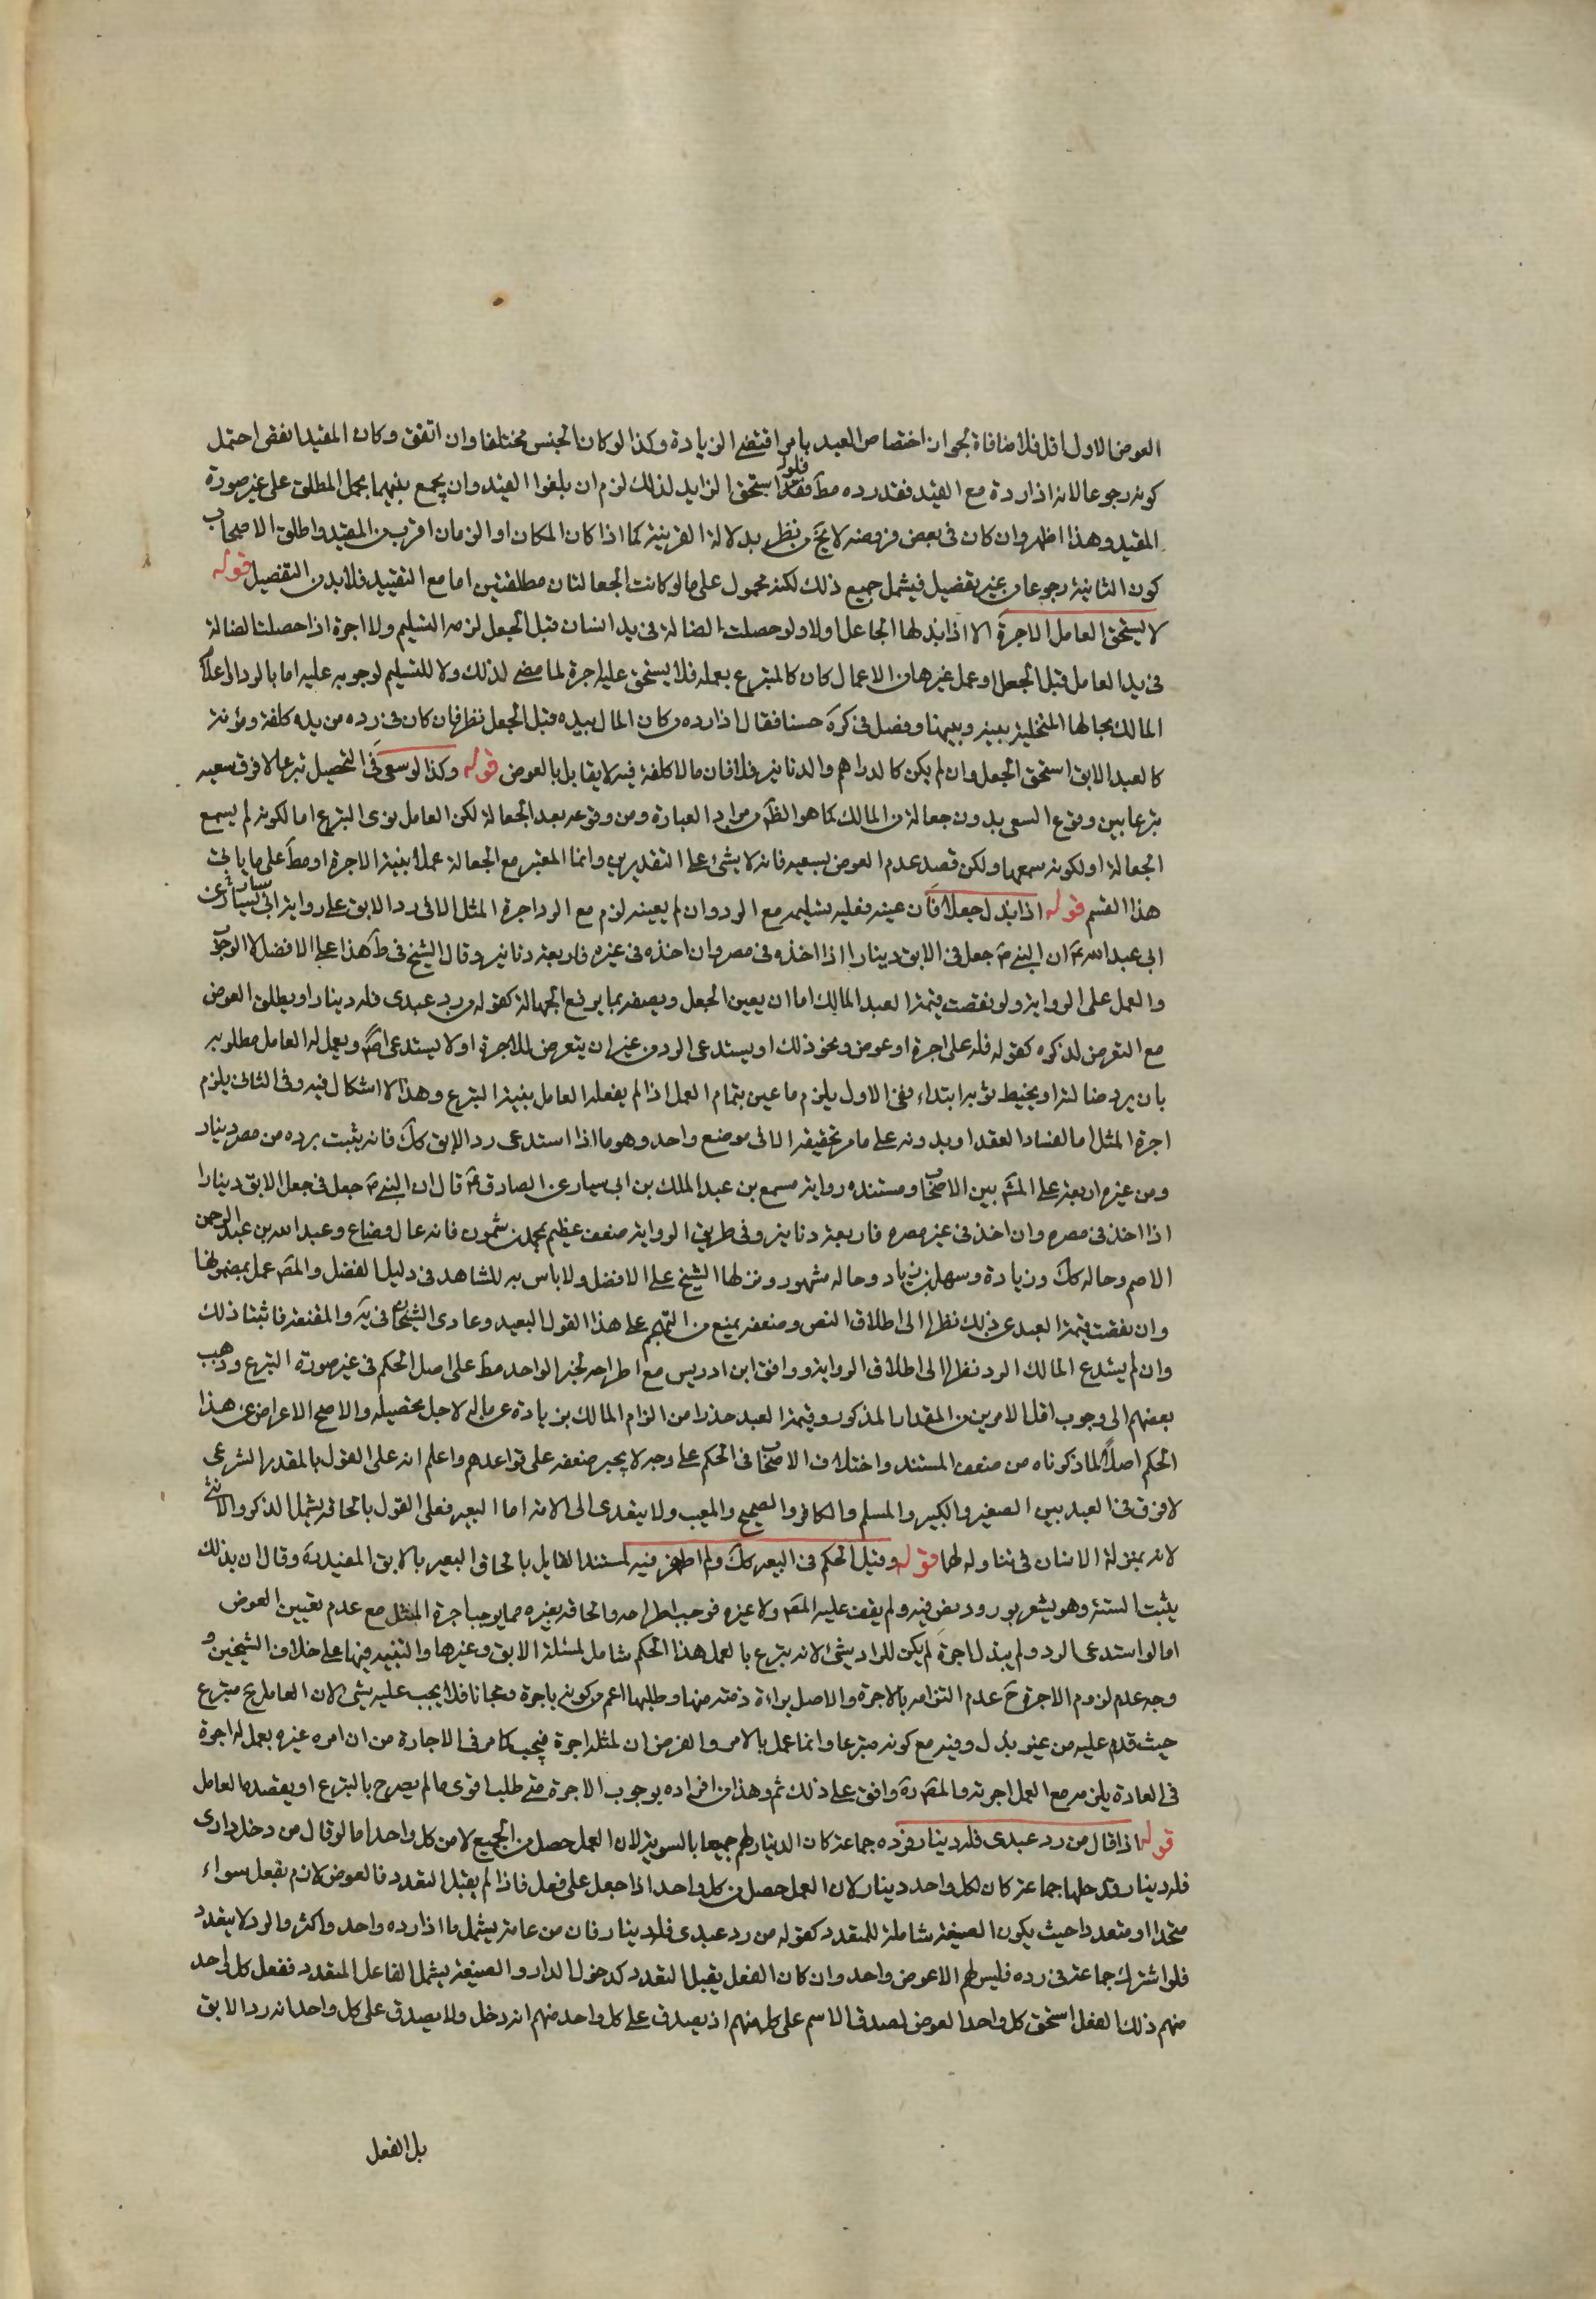 العوض الاول اقل فلا منافاة لجواز اختصاص العبد بامر اقتضى الزيادة وكذا لو كان الجنس مختلفا وان اتفق وكان المقيد انقص احتمل
كونه رجوعا لانه اذا رده مع القيد فقد رده مط فلو استحق الزايد لذلك لزم ان يلغوا القيد وان يجمع بينهما بحمل المطلق على غير صورة
المقيد وهذا اظهر وان كان في بعض فروضه لا يخ من نظر بدلالة القرينة كما اذا كان المكان او الزمان اقرب من المقيد واطلق الاصحاب
كون الثانية رجوعا من غير تفصيل فيشمل جميع ذلك لكنه محمول على ما لو كانت الجعالتان مطلقتين اما مع التقييد فلا بد من التفصيل قوله
لا يستحق العامل الاجرة الا اذا بذلها الجاعل اولا ولو حصلت الضالة في يد انسان قبل الجعل لزمه التسليم ولا اجرة اذا حصلت الضالة
في يد العامل قبل الجعل او عمل غيرها من الاعمال كان كالمتبرع بعمله فلا يستحق عليه اجرة لما مضى لذلك ولا للتسليم لوجوبه عليه اما بالرد او اعلام
المالك بحالها المتخلية بينه وبينها وفصل في كره حسنا فقال اذا رده من كان المال بيده قبل الجعل نظر فان كان في رده من يده كلفة ومؤنة
كالعبد الابق استحق الجعل وان لم يكن كالدراهم والدنانير فلا فان ما لا كلفة فيه لا يقابل بالعوض قوله وكذا لو سعى في التحصيل تبرعا لا فرق سعيه
تبرعا بين وقوع السعى بدون جعالة من المالك كما هو الظ من مراد العبارة ومن وقوعه بعد الجعالة لكن العامل نوى التبرع اما لكونه لم يسمع
الجعالة او لكونه سمعها ولكن قصد عدم العوض بسعيه فانه لا شئ على التقديرين وانما المعتبر مع الجعالة عمله بنية الاجرة او مط على ما ياتى
هذا القسم قوله اذا بذل جعلا فان عينه فعليه تسليمه مع الرد وان لم يعينه لزم مع الرد اجرة المثل الا في رد الابق على رواية ابى سيار عن
ابى عبدالله ع ان النبي ص جعل في الابق دينارا اذا اخذه في مصره وان اخذه في غيره فاربعة دنانير وقال الشيخ في ط هذا على الافضل لا الوجوب
والعمل على الرواية ولو نقصت قيمة العبد المالك اما ان يعين الجعل ويصفه بما يرفع الجهالة كقوله من رد عبدى فله دينار او يطلق العوض
مع التعرض لذكره كقوله فله على اجرة او عوض ونحو ذلك او يستدعى الرد من غير ان يتعرض للاجرة او لا يستدعى اصلا ويعمل له العامل مطلوبه
بان يرد ضالته او يخيط ثوبه ابتداء ففى الاول يلزم ما عين بتمام العمل اذا لم يفعله العامل بنية التبرع وهذا لا اشكال فيه وفى الثانى يلزم
اجرة المثل اما لفساد العقد او بدونه على ما مر تحقيقه الا في موضع واحد وهو ما اذا استدعى رد الابق كك فانه يثبت برده من مصره دينار
ومن غيره اربعة على المش بين الاصحاب ومستنده رواية مسمع بن عبد الملك بن ابى سيار عن الصادق ع قال ان النبي ص جعل في جعل الابق دينارا
اذا اخذ في مصره وان اخذ في غير مصره فاربعة دنانير وفى طريق الرواية ضعف عظيم بمحمد بن شمون فانه غال وضاع وعبدالله بن عبدالرحمن
الاصم وحاله كك وزيادة وسهل بن زياد وحاله مشهور ونزلها الشيخ على الافضل ولا باس به للتساهد في دليل الفضل والمص عمل بمضمونها
وان نقصت قيمة العبد عن ذلك نظرا الى اطلاق النص وضعفه يمنع من التهجم على هذا القول البعيد وعادى الشيخان في ية والمقنعة فاثبتا ذلك
وان لم يستدع المالك الرد نظرا الى اطلاق الرواية ووافق ابن ادريس مع اطراحه لخبر الواحد مط على اصل الحكم في غير صورة التبرع وذهب
بعضهم الى وجوب اقل الامرين من المقدار المذكور وقيمة العبد حذرا من الزام المالك بزيادة عن ماله لاجل تحصيله والاصح الاعراض عن هذا
الحكم اصلا لما ذكرناه من ضعف المستند واختلاف الاصحاب في الحكم على وجه لا يجبر ضعفه على قواعدهم واعلم انه على القول بالمقدر الشرعى
لا فرق في العبد بين الصغير والكبير والمسلم والكافر والصحيح والمعيب ولا يتعدى الى الامة اما البعير فعلى القول بالحاقه يشمل الذكر والانثى
لانه بمنزلة الانسان في تناوله لهما قوله وقيل الحكم في البعير كك ولم اظفر فيه لمستند القايل بالحاق البعير بالابق المفيد ره وقال ان بذلك
يثبت السنة وهو يشعر بورود نص فيه ولم يقف عليه المص ولا غيره فوجب اطراحه والحاقه بغيره مما يوجب اجرة المثل مع عدم تعيين العوض
اما لو استدعى الرد ولم يبذل اجرة لم يكن للراد شئ لانه تبرع بالعمل هذا الحكم شامل لمسئلة الابق وغيرها والتنبيه فيها على خلاف الشيخين و
وجه عدم لزوم الاجرة ح عدم التزامه بالاجرة والاصل براءة ذمته منها وطلبها اعم من كونه باجرة ومجانا فلا يجب عليه شئ لان العامل ح متبرع
حيث قدم عليه من غير بذل وفيه مع كونه متبرعا وانما عمل بالامر والفرض ان لمثله اجرة فيجب كما مر في الاجارة من ان امره غيره بعمل له اجرة
في العادة يلزمه مع العمل اجرته والمص ره وافق على ذلك ثم وهذا من افراده بوجوب الاجرة متى طلب اقوى ما لم يصرح بالتبرع او يقصده العامل
قوله اذا قال من رد عبدى فله دينار فرده جماعة كان الدينار لهم جميعا بالسوية لان العمل حصل من الجميع لا من كل واحد اما لو قال من دخل دارى
فله دينار فدخلها جماعة كان لكل واحد دينار لان العمل حصل من كل واحد اذا جعل على فعل فاذا لم يقبل التعدد فالعوض لازم بفعل سواء
متحدا او متعددا حيث يكون الصيغة شاملة للمتعدد كقوله من رد عبدى فله دينار فان من عامة يشمل ما اذا رده واحد واكثر والرد لا يتعدد
فلو اشترك جماعة في رده فليس لهم الا عوض واحد وان كان الفعل يقبل التعدد كدخول الدار والصيغة يشمل الفاعل المتعدد ففعل كل واحد
منهم ذلك الفعل استحق كل واحد العوض لصدق الاسم على كل منهم اذ يصدق على كل واحد منهم انه دخل ولا يصدق على كل واحد انه رد الابق
بل الفعل